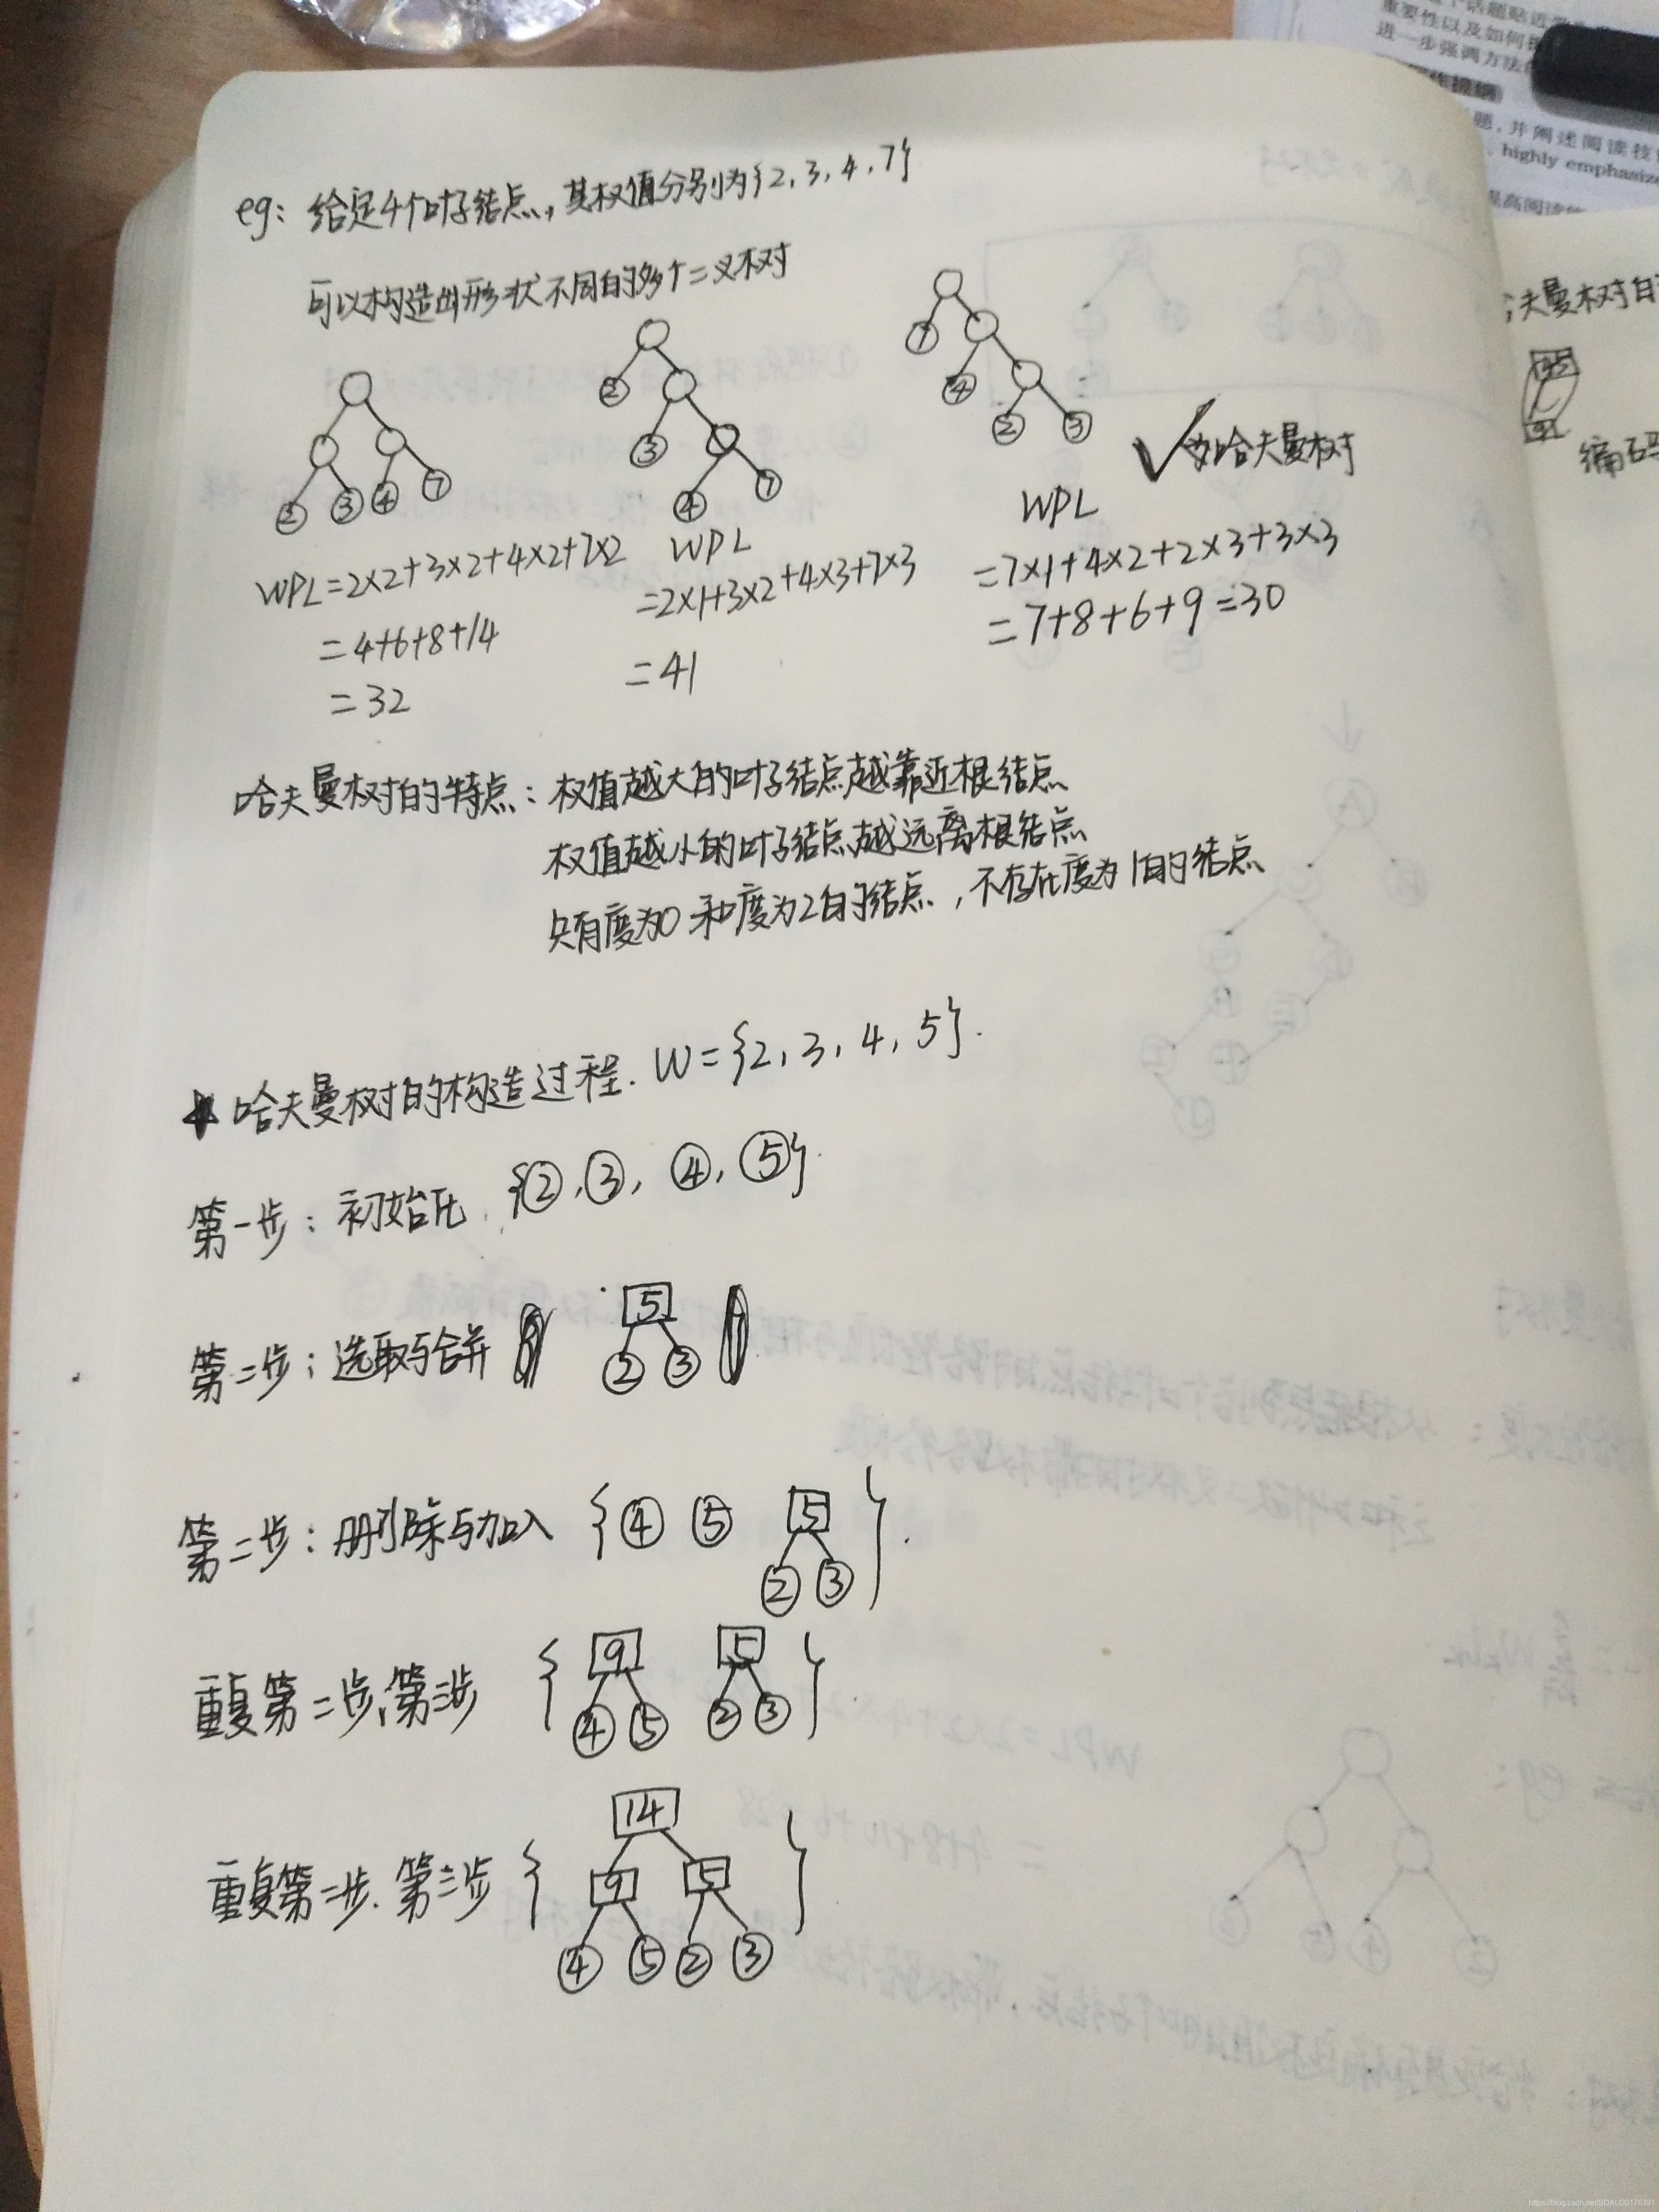 eg: 给定4个叶子结点,其权值分别为{2,3,4,7}
可以构造出形状不同的多个二叉树
2 3 4 7
2 3 4 7
7 4 2 3
✓为哈夫曼树
WPL=2×2+3×2+4×2+7×2
=4+6+8+14
=32
WPL
=2×1+3×2+4×3+7×3
=41
WPL
=7×1+4×2+2×3+3×3
=7+8+6+9=30
哈夫曼树的特点:权值越大的叶子结点越靠近根结点
权值越小的叶子结点越远离根结点
只有度为0和度为2的结点,不存在度为1的结点
★哈夫曼树的构造过程. W={2,3,4,5}.
第一步:初始化. {②,③,④,⑤}.
第二步:选取与合并
5
② ③
第二步:删除与加入 {④ ⑤ 5
② ③}.
重复第二步、第三步 { 9 5
④ ⑤ ② ③}.
14
重复第二步.第三步 { 9 5
④ ⑤ ② ③}
重要性以及如何
进一步强调方法
题,并阐述阅读技
highly emphasize
夫曼树
编码
https://blog.csdn.net/SDAU20176391